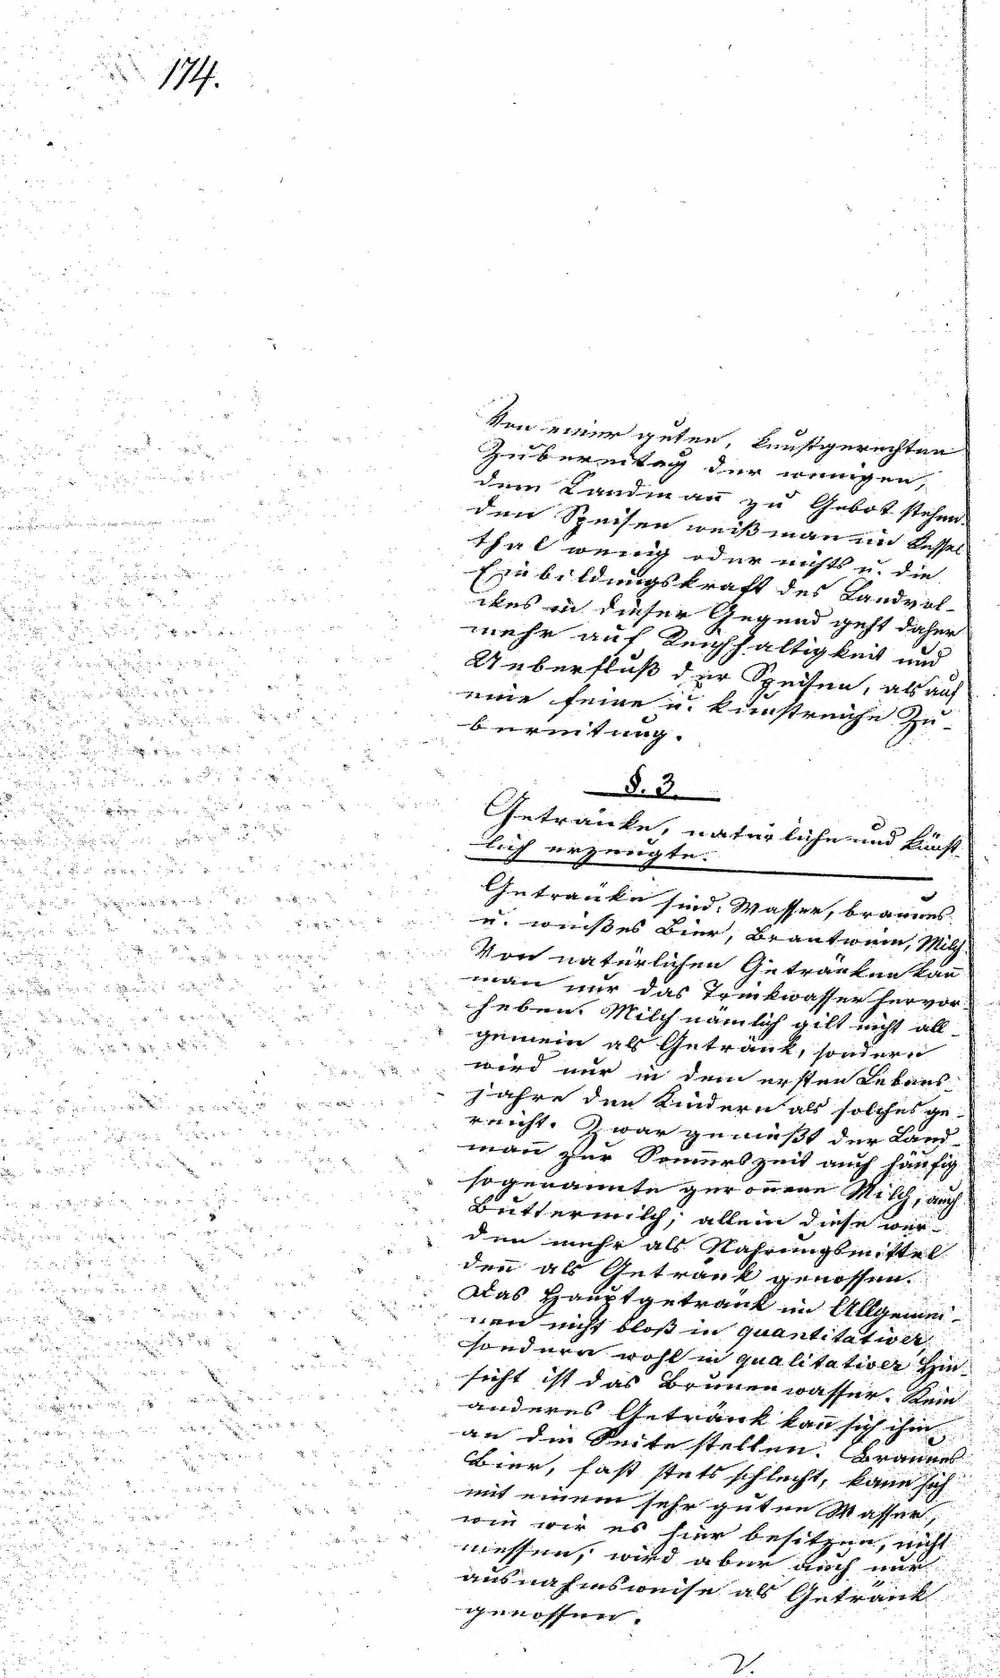 174.
Von einer guten, kunstgerechten
Zubereitug der wenigen,
dem Landmañ zu Gebot stehen-
den Speisen weiß man im Kessel
thal wenig oder nichts u. die
Einbildungskraft des Landvol-
ckes in dieser Gegend geht daher
mehr auf Reichhaltigkeit und
Ueberfluß der Speisen, als auf
eine feine u. kunstreiche Zu-
bereitung.
§. 3.
Getränke, natürliche und künst-
lich erzeugte.
Getränke sind: Wasser, braunes
u. weißes Bier, Brantwein, Milch.
Von natürlichen Getränken kañ
man nur das Trinkwasser hervor-
heben. Milch nämlich gilt nicht all-
gemein als Getränk, sondern
wird nur in dem ersten Lebens-
jahre den Kindern als solches ge-
reicht. Zwar genießt der Land-
mañ zur Som̃erszeit auch häufig
sogenannte geroñene Milch, auch
Buttermilch; allein diese wer-
den mehr als Nahrungsmittel
deñ als Getränk genossen.
Das Hauptgetränk im Allgemei-
nen nicht bloß in quantitativer,
sondern wohl in qualitativer Hin-
sicht ist das Brunenwasser. Kein
anderes Getränk kañ sich ihm
an die Seite stellen. Braunes
Bier, fast stets schlecht, kann sich
mit einem sehr guten Wasser,
wie wir es hier besitzen, nicht
messen; wird aber auch nur
ausnahmsweise als Getränk
genossen.
V.